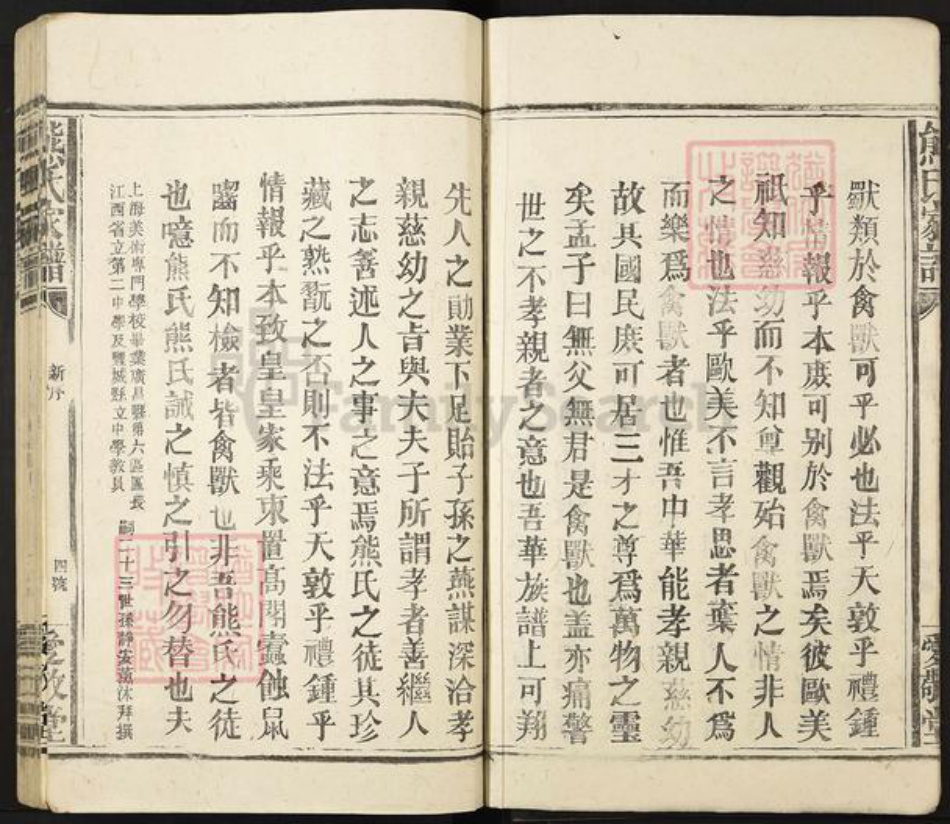 熊氏家譜
愛敬堂
獸類於禽獸可乎必也法乎天敦乎禮鍾
乎情報乎本庶可别於禽獸焉矣彼歐美
祇知慈幼而不知尊觀殆禽獸之情非人
之情也法乎歐美不言孝思者棄人不爲
而樂爲禽獸者也惟吾中華能孝親慈幼
故其國民庶可居三才之尊爲萬物之靈
矣孟子曰無父無君是禽獸也盖亦痛警
世之不孝親者之意也吾華族譜上可翔
先人之勛業下足貽子孫之燕謀深洽孝
親慈幼之旨與夫夫子所謂孝者善繼人
之志善述人之事之意焉熊氏之徒其珍
藏之熟翫之否則不法乎天敦乎禮鍾乎
情報乎本致皇皇家乘束置高閣蠹蝕鼠
齧而不知檢者皆禽獸也非吾熊氏之徒
也噫熊氏熊氏誡之慎之引之勿替也夫
上海美術專門學校畢業廣昌縣第六區區長
江西省立第二中學及縣立中學教員
嗣二十三世孫靜安薰沐拜撰
熊氏家譜
新序
四號
愛敬堂
FamilySearch